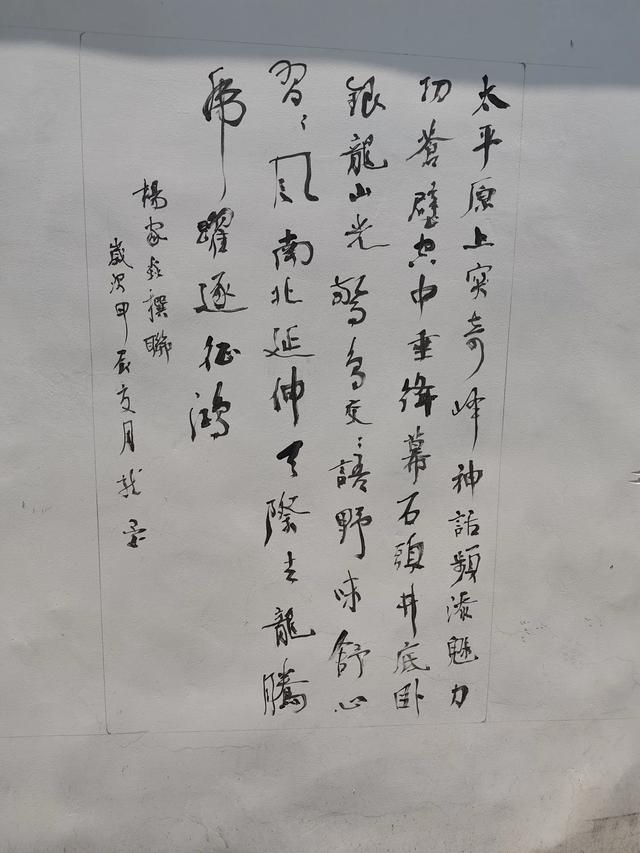 太平原上突奇峰神話頻添魅力
切蒼壁空中垂絳幕石頭井底卧
銀龍山光驚鳥交々語野味舒心
習々風南北延伸天際去龍騰
虎躍逐征鴻
楊家撰聯
歲次甲辰月